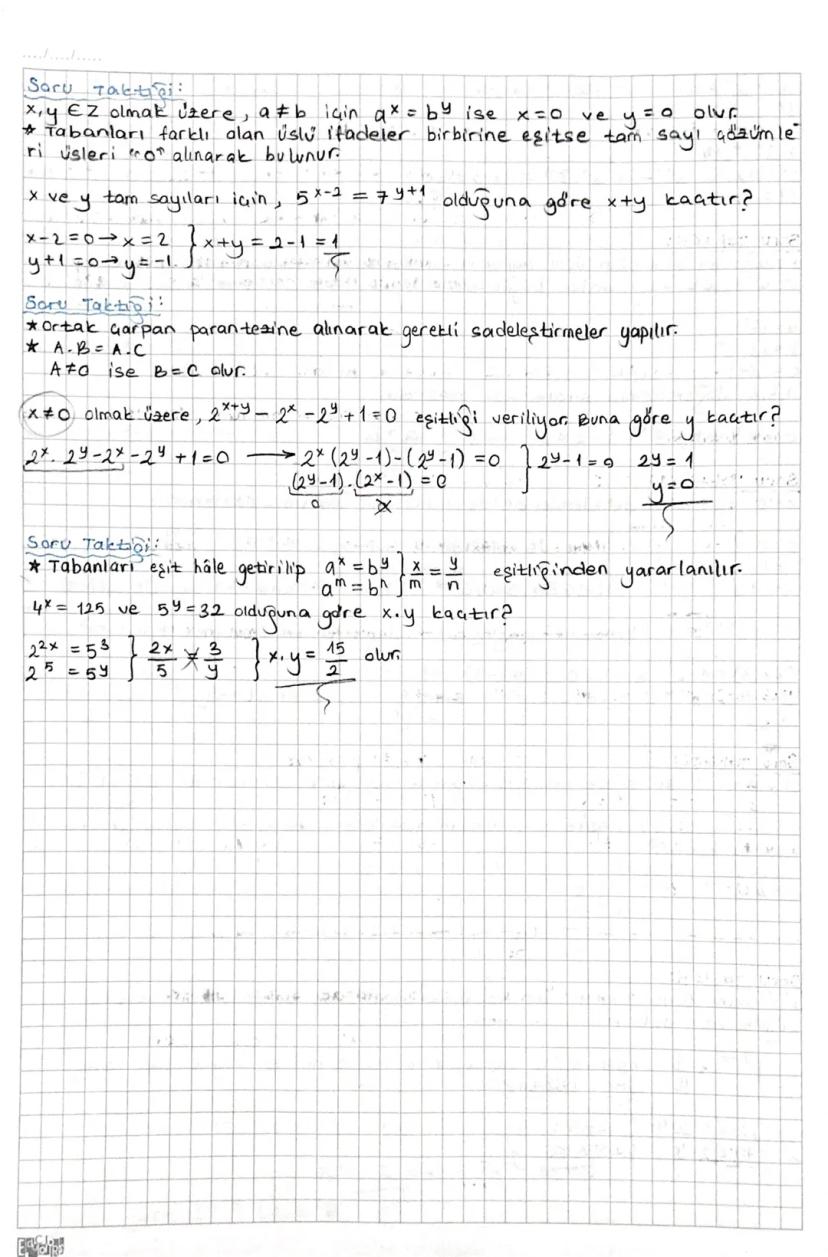 ..../..../.....
Soru Taktiği:
x, y ∈ Z olmak üzere, a ≠ b için aˣ = bʸ ise x=0 ve y=0 olur.
* Tabanları farklı olan üslü ifadeler birbirine eşitse tam sayı çözümle
ri üsleri "0" alınarak bulunur.
x ve y tam sayıları için, 5ˣ⁻² = 7ʸ⁺¹ olduğuna göre x+y kaçtır?
x-2=0→x=2 } x+y = 2-1 = 1
y+1=0→y=-1
Soru Taktiği:
* Ortak çarpan parantezine alınarak gerekli sadeleştirmeler yapılır.
* A.B = A.C
A≠0 ise B=C olur.
x≠0 olmak üzere, 2ˣ⁺ʸ - 2ˣ - 2ʸ + 1 = 0 eşitliği veriliyor. Buna göre y kaçtır?
2ˣ. 2ʸ - 2ˣ - 2ʸ + 1 = 0 → 2ˣ (2ʸ - 1) - (2ʸ - 1) = 0 } 2ʸ - 1 = 0 2ʸ = 1
(2ʸ - 1) . (2ˣ - 1) = 0 y = 0
0 x
Soru Taktiği:
* Tabanları eşit hâle getirilip aˣ = bʸ } x/m = y/n eşitliğinden yararlanılır.
aᵐ = bⁿ
4ˣ = 125 ve 5ʸ = 32 olduğuna göre x.y kaçtır?
2²ˣ = 5³ } 2x/5 = 3/y } x.y = 15/2 olur.
2⁵ = 5ʸ